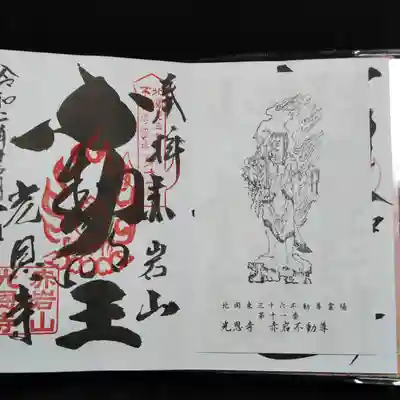 奉拝 赤岩山
不動明王
光恩寺
令和二年
赤岩山
光恩寺
北関東三十六不動尊霊場
第十一番
光恩寺 赤岩不動尊